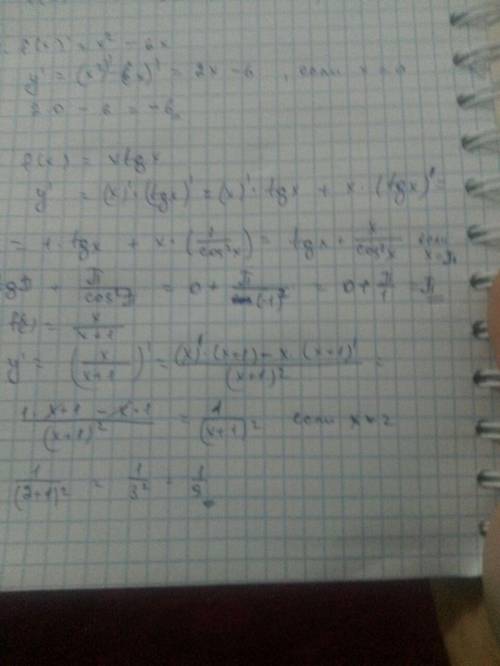 f(x) = x² - 6x
y' = (x²)' - (6x)' = 2x - 6 , если x = 0
2 · 0 - 6 = -6
f(x) = x tg x
y' = (x)' · (tg x)' = (x)' · tg x + x · (tg x)' =
= 1 · tg x + x · (1/cos²x) = tg x + x/cos²x если x = π
tg π + π/cos²π = 0 + π/(-1)² = 0 + π/1 = π
f(x) = x/(x+1)
y' = (x/(x+1))' = ((x)' · (x+1) - x · (x+1)')/(x+1)² =
(1 · x+1 - x · 1)/(x+1)² = 1/(x+1)² если x = 2
1/(2+1)² = 1/3² = 1/9